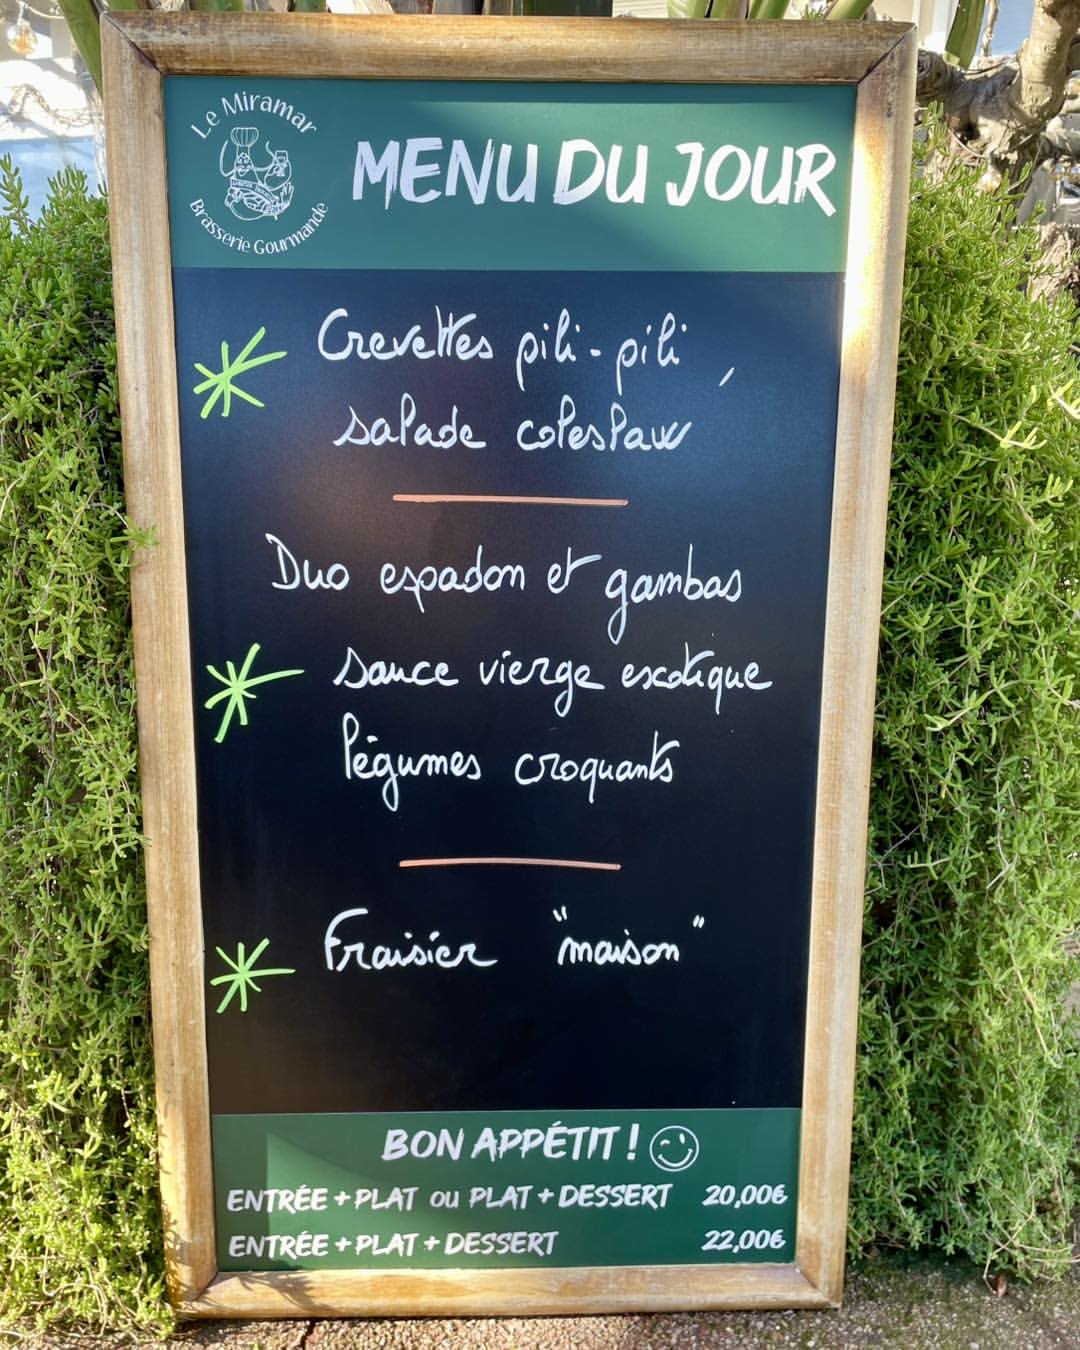 Le Miramar
Brasserie Gourmande
MENU DU JOUR
Crevettes pili-pili,
salade coleslaw
Duo espadon et gambas
sauce vierge exotique
légumes croquants
Fraisier "maison"
BON APPÉTIT !
ENTRÉE + PLAT OU PLAT + DESSERT 20,00€
ENTRÉE + PLAT + DESSERT 22,00€